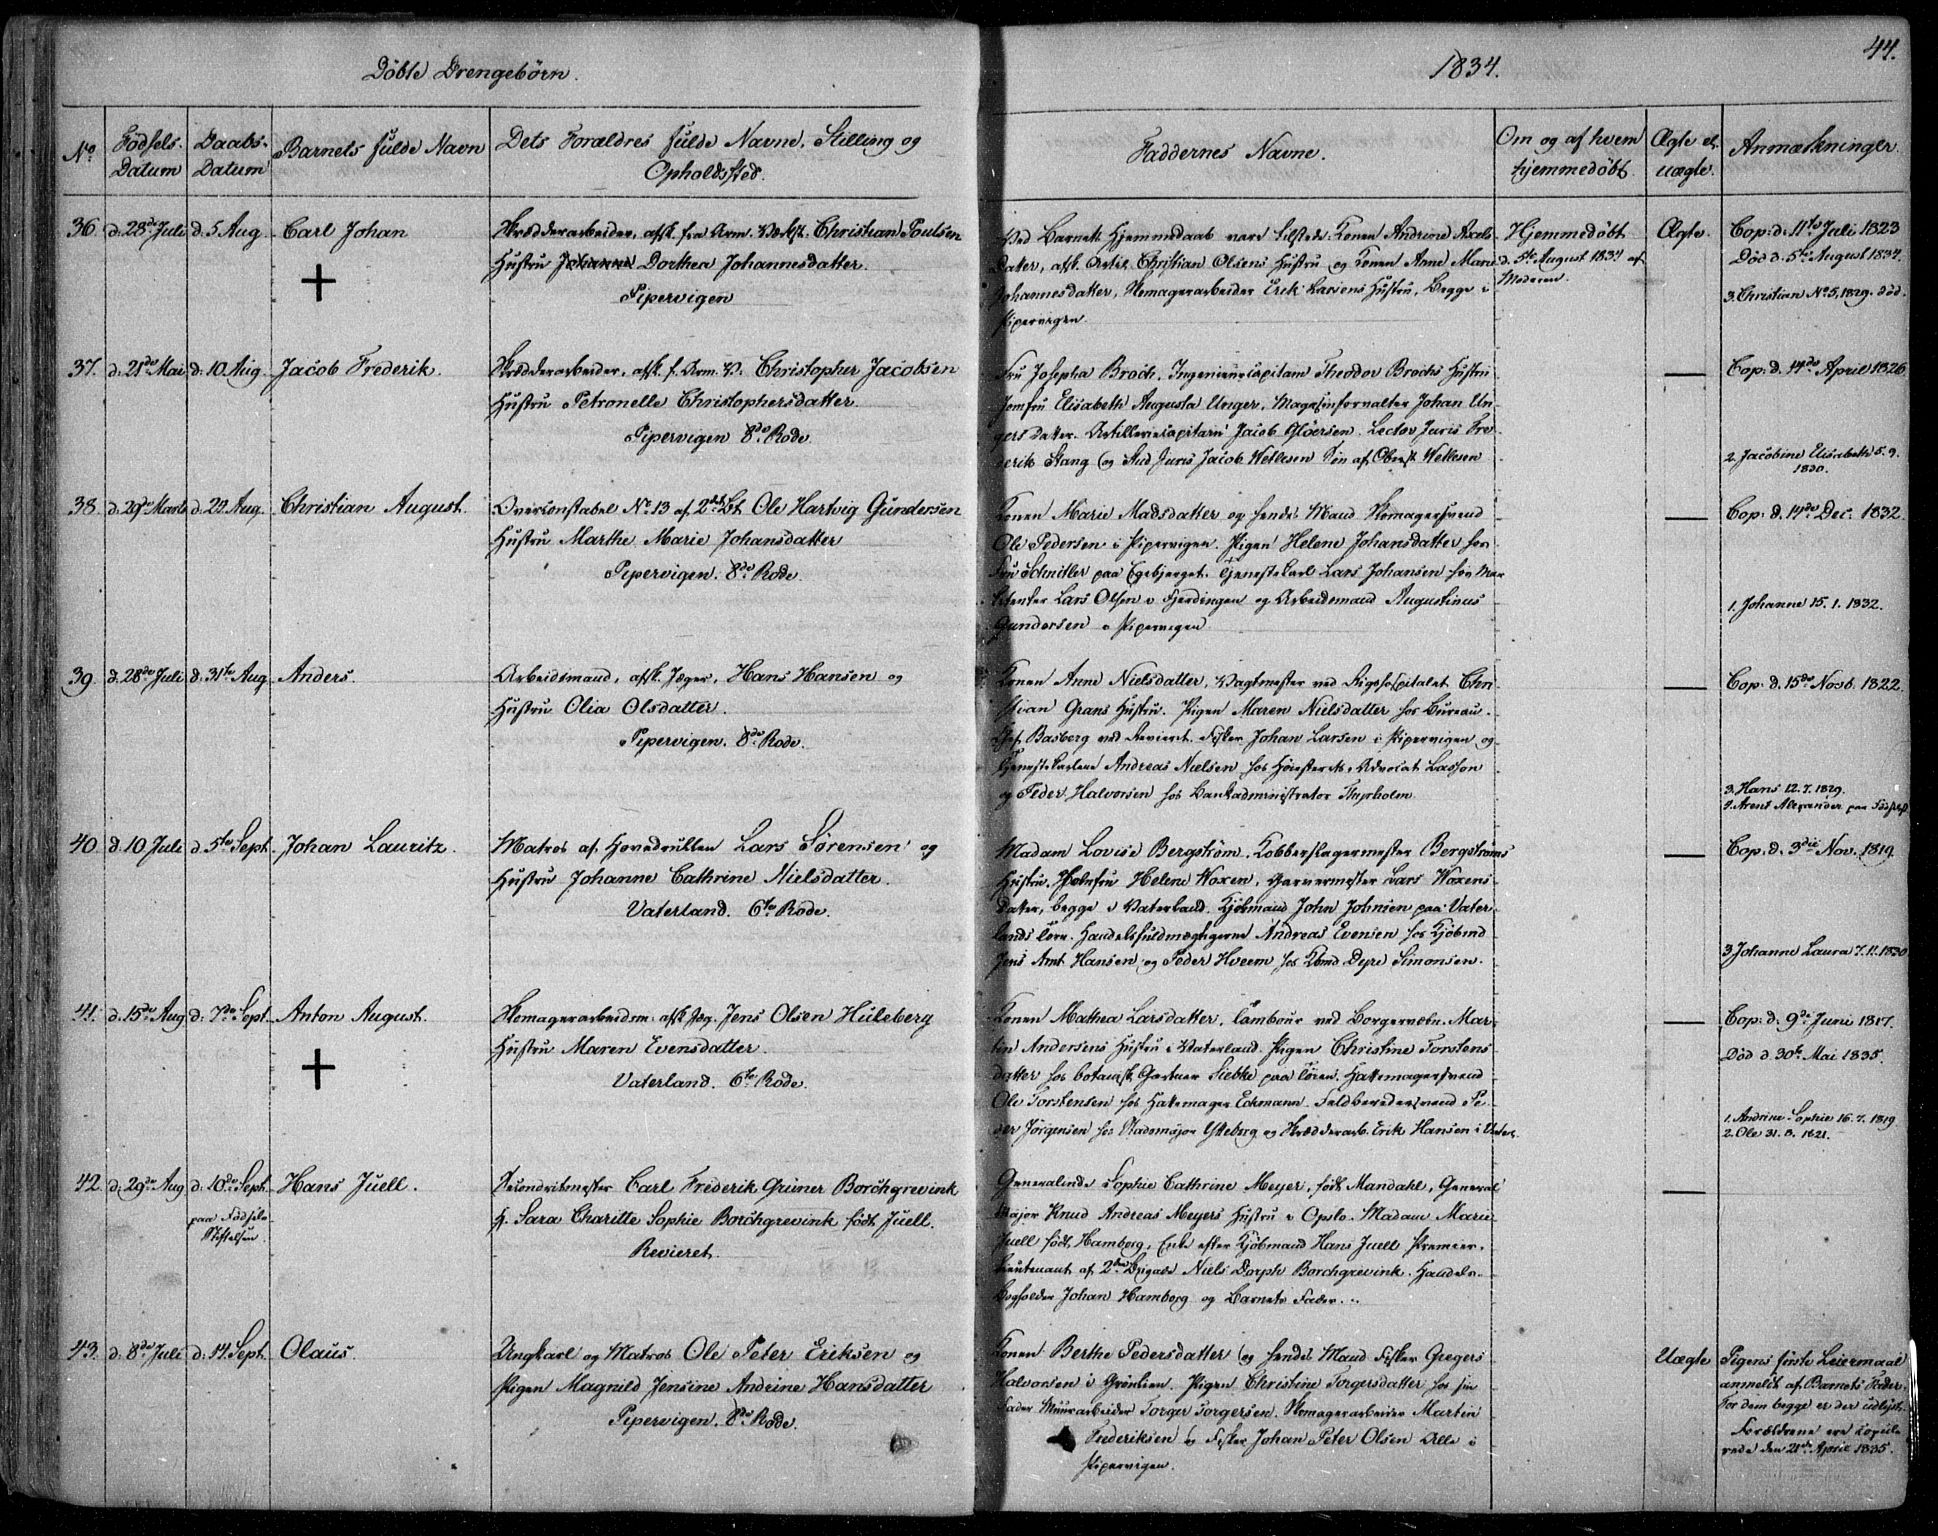 Döbte Drengebörn.
1834.
44.
No.
Födsels Datum
Daabs-Datum
Barnets fulde Navn
Dets Forældres fulde Navne, Stilling og Opholdssted.
Faddernes Navne.
Om og af hvem hjemmedøbt.
Ægte el. uægte.
Anmærkninger.
36. d. 28de Juli d. 5 Aug. Carl Johan
Skrædderarbeider, afsk. fra Arm. Værkst. Christian Poulsen
Hustru Johanne Dorthea Johannesdatter.
Pipervigen
Ved Barnets Hjemmedaab vare tilstede Konen Andrine Axels
Datter, afsk. Artil. Christian Olsens Hustru og Konen Anne Marie
Johannesdatter, Skomagerarbeider Erik Larsens Hustru, Begge i
Pipervigen.
Hjemmedøbt
d. 5te August 1834 af
Moderen.
Ægte.
Cop: d. 11te Juli 1823
Død d. 5te August 1834.
3. Christian No 5, 1829. død.
37. d. 21de Mai d. 10 Aug. Jacob Frederik.
Skrædderarbeider, afsk. f. Arm. V. Christopher Jacobsen
Hustru Petronelle Christophersdatter.
Pipervigen 8de Rode.
Fru Josepha Broch, Ingenieurcapitain Theodor Brochs Hustru
Jomfru Elisabeth Augusta Unger, Magasinforvalter Johan Un-
gers Datter. Artilleriecapitain Jacob Gløersen. Lector Juris Fre-
derik Stang og Stud Juris Jacob Wetlesen Søn af Oberst Wetlesen
Cop: d. 14de April 1826
2. Jacobine Elisabeth 5. 9.
1830.
38. d. 29de Marts d. 29 Aug. Christian August.
Overconstabel No. 13 af 2det Bt. Ole Hartvig Gundersen
Hustru Marthe Marie Johansdatter
Pipervigen. 8de Rode.
Konen Marie Madsdatter og hendes Mand Skomagersvend
Ole Pedersen i Pipervigen. Pigen Helene Johansdatter hos
Fru Schnitler paa Egebjerget. Tjenestekarl Lars Johansen hos Mar-
ketenter Lars Olsen i Fjerdingen og Arbeidsmand Augustinus
Gundersen i Pipervigen
Cop: d. 14de Dec. 1832.
1. Johanne 15. 1. 1832.
39. d. 28de Juli d. 31te Aug. Anders.
Arbeidsmand, afsk. Jæger, Hans Hansen og
Hustru Olia Olsdatter.
Pipervigen. 8de Rode.
Konen Anne Nielsdatter, Vagtmester ved Rigshospitalet Chri-
stian Grans Hustru. Pigen Maren Nielsdatter hos Bureau-
chef Basberg ved Revieret. Fisker Johan Larsen i Pipervigen og
Tjenestekarlene Andreas Nielsen hos Høiesterets-Advocat Lasson
og Peder Halvorsen hos Bankadministrator Thyrholm
Cop: d. 15de Novb. 1822.
3. Hans 12. 7. 1829.
Arent Alexander paa Födselsst.
40. d. 10 Juli d. 5te Sept. Johan Lauritz.
Matros af Hovedrullen Lars Sørensen og
Hustru Johanne Cathrine Nielsdatter.
Vaterland. 6te Rode.
Madam Lovise Bergstrøm, Kobberslagermester Bergstrøms
Hustru. Jomfru Helene Woxen, Garvermester Lars Woxens
Datter, begge i Vaterland. Kjøbmand John Johnsen paa Vater-
lands Torv. Handelsfuldmægtigerne Andreas Evensen hos Kjøbmd
Jens Amt Hansen og Peder Hveem hos Kbmd Dyre Simonsen.
Cop. d. 3die Nov. 1819.
3. Johanne Laura 7. 11. 1830
41. d. 15de Aug. d. 7de Sept. Anton August.
Skomagerarbeider afsk. Jæg. Jens Olsen Huleberg
Hustru Maren Evensdatter.
Vaterland. 6te Rode.
Konen Mathea Larsdatter, Tambour ved Borgervæbn. Mar-
tin Andersens Hustru i Vaterland. Pigen Christine Torstens-
datter hos botanisk Gartner Siebke paa Töien. Hattemagersvend
Ole Torstensen hos Hattemager Eckmann. Feldberedersvend Pe-
der Jørgensen hos Stadsmajor Ytteborg og Skrædderarb. Erik Hansen i Vater.
Cop: d. 9de Juni 1817.
Død d. 30te Mai 1835.
1. Andrine Sophie 16. 7. 1819
2. Ole 31. 8. 1821.
42. d. 29de Aug d. 10de Sept. Hans Juell.
paa Födsels
Stiftelsen.
Secondritmester Carl Frederik Grüner Borchgrevink
H. Sara Charitte Sophie Borchgrevink født Juell.
Revieret.
Generalinde Sophie Cathrine Meyer, født Mandahl, General
Major Knud Andreas Meyers Hustru i Opslo. Madam Marie
Juell født Hamborg, Enke efter Kjøbmand Hans Juell. Premier-
lieutenant af 2den Brigade Niels Dorph Borchgrevink. Handels-
bogholder Johan Hamborg og Barnets Fader.
43. d. 8de Juli d. 14. Sept. Olaus.
Ungkarl og Matros Ole Peter Eriksen og
Pigen Magnild Jensine Andrine Hansdatter
Pipervigen. 8de Rode.
Konen Berthe Pedersdatter og hendes Mand Fisker Gregers
Halvorsen i Grönlien. Pigen Christine Torgersdatter hos sin
Fader Muurarbeider Torger Torgersen. Skomagerarbeider Martin
Frederiksen og Fisker Johan Peter Olsen Alle i
Pipervigen.
Uægte
Pigens første Leiermaal
anmeldt af Barnets Fader.
For dem begge er der udlyst.
Forældrene ere copule-
rede den 21de April 1835.